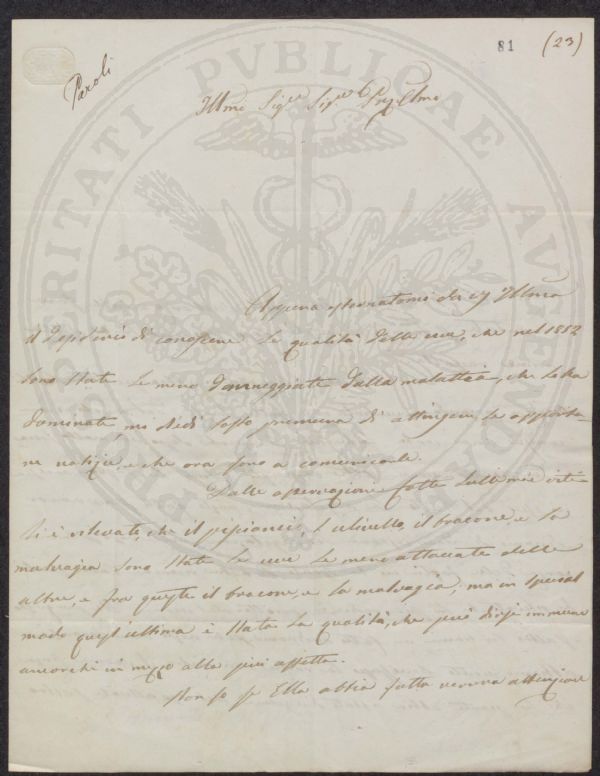 81 (23)
Paroli
PROSPERITATI PVBLICAE AVGENDAE
Illmo Sigre Sigre
Appena Illmo
il desiderio di conoscere le qualità delle uve, che nel 1852
sono state le meno danneggiate dalla malattia, che le ha
dominate mi diedi tosto premura di attingere le opportu-
ne notizie, che ora sono a comunicarle.
Dalle osservazioni fatte sulle mie viti
si è rilevato, che il pisciancio, l'ulivello, il bracone, e la
malvagia sono state le uve le meno attaccate delle
altre, e fra queste il bracone, e la malvagia, ma in special
modo quest'ultima è stata la qualità, che può dirsi immune
ancorchè in mezzo alle più affette.
Non so se Ella abbia fatta veruna attenzione